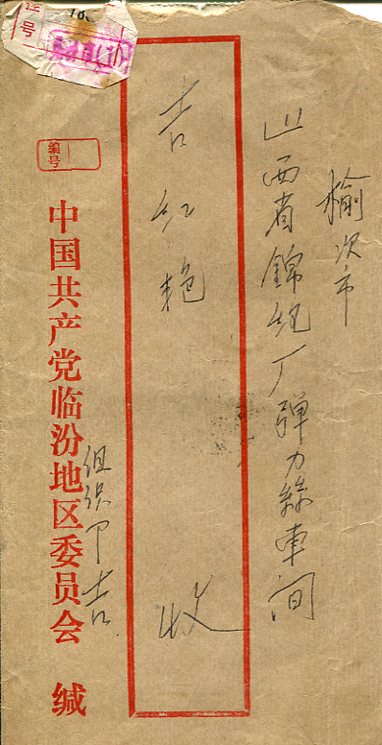 榆次市
山西省錦纶厂弹力絲車间
吉红艳
收
编号
中国共产党临汾地区委员会 缄
组织卩吉
号